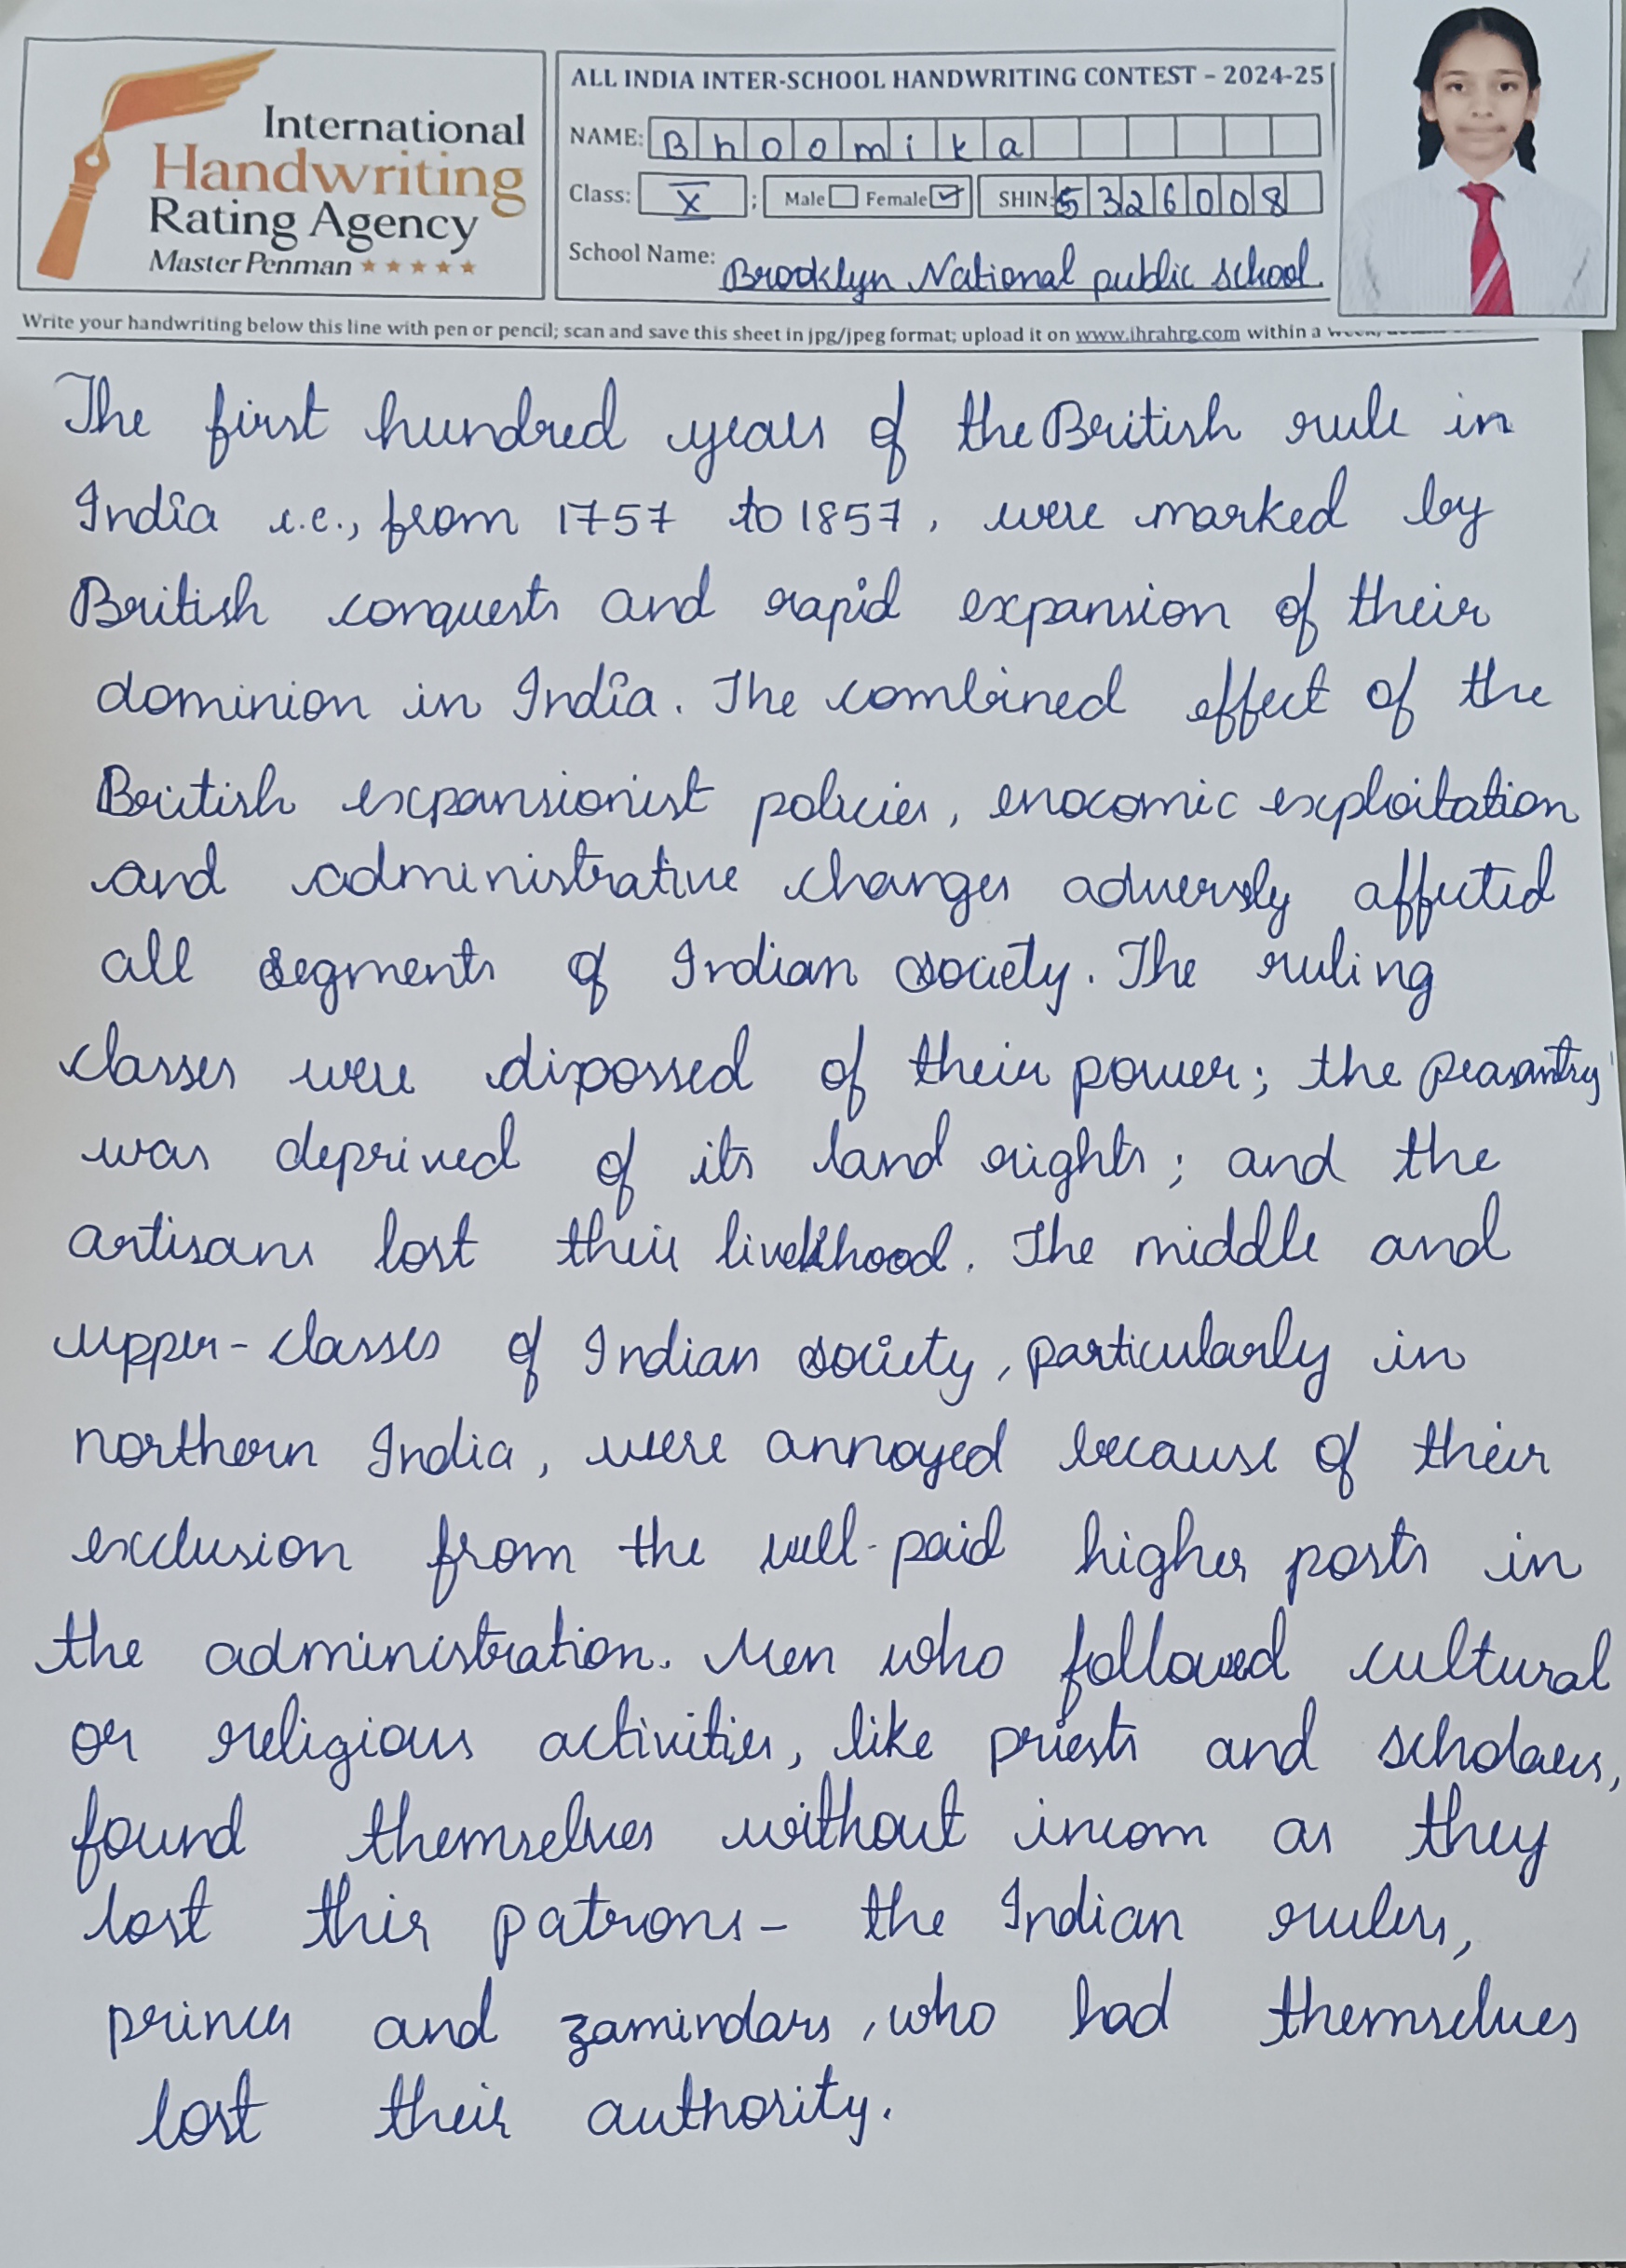 International
Handwriting
Rating Agency
Master Penman
ALL INDIA INTER-SCHOOL HANDWRITING CONTEST – 2024-25
NAME: Bhoomika
Class: X ; Male Female SHIN: 5326008
School Name: Brooklyn National public school
Write your handwriting below this line with pen or pencil; scan and save this sheet in jpg/jpeg format; upload it on www.ihrahrg.com within a
The first hundred years of the British rule in
India i.e., from 1757 to 1857, were marked by
British conquests and rapid expansion of their
dominion in India. The combined effect of the
British expansionist policies, enocomic exploitation
and administrative changes adversly affected
all segments of Indian society. The ruling
classes were dipossed of their power; the peasantry
was deprived of its land rights; and the
artisans lost their livelihood. The middle and
upper-classes of Indian society, particularly in
northern India, were annoyed because of their
exclusion from the well-paid higher posts in
the administration. Men who followed cultural
or religious activities, like priests and scholars,
found themselves without incom as they
lost this patrons- the Indian rulers,
princes and zamindars, who had themselves
lost their authority.